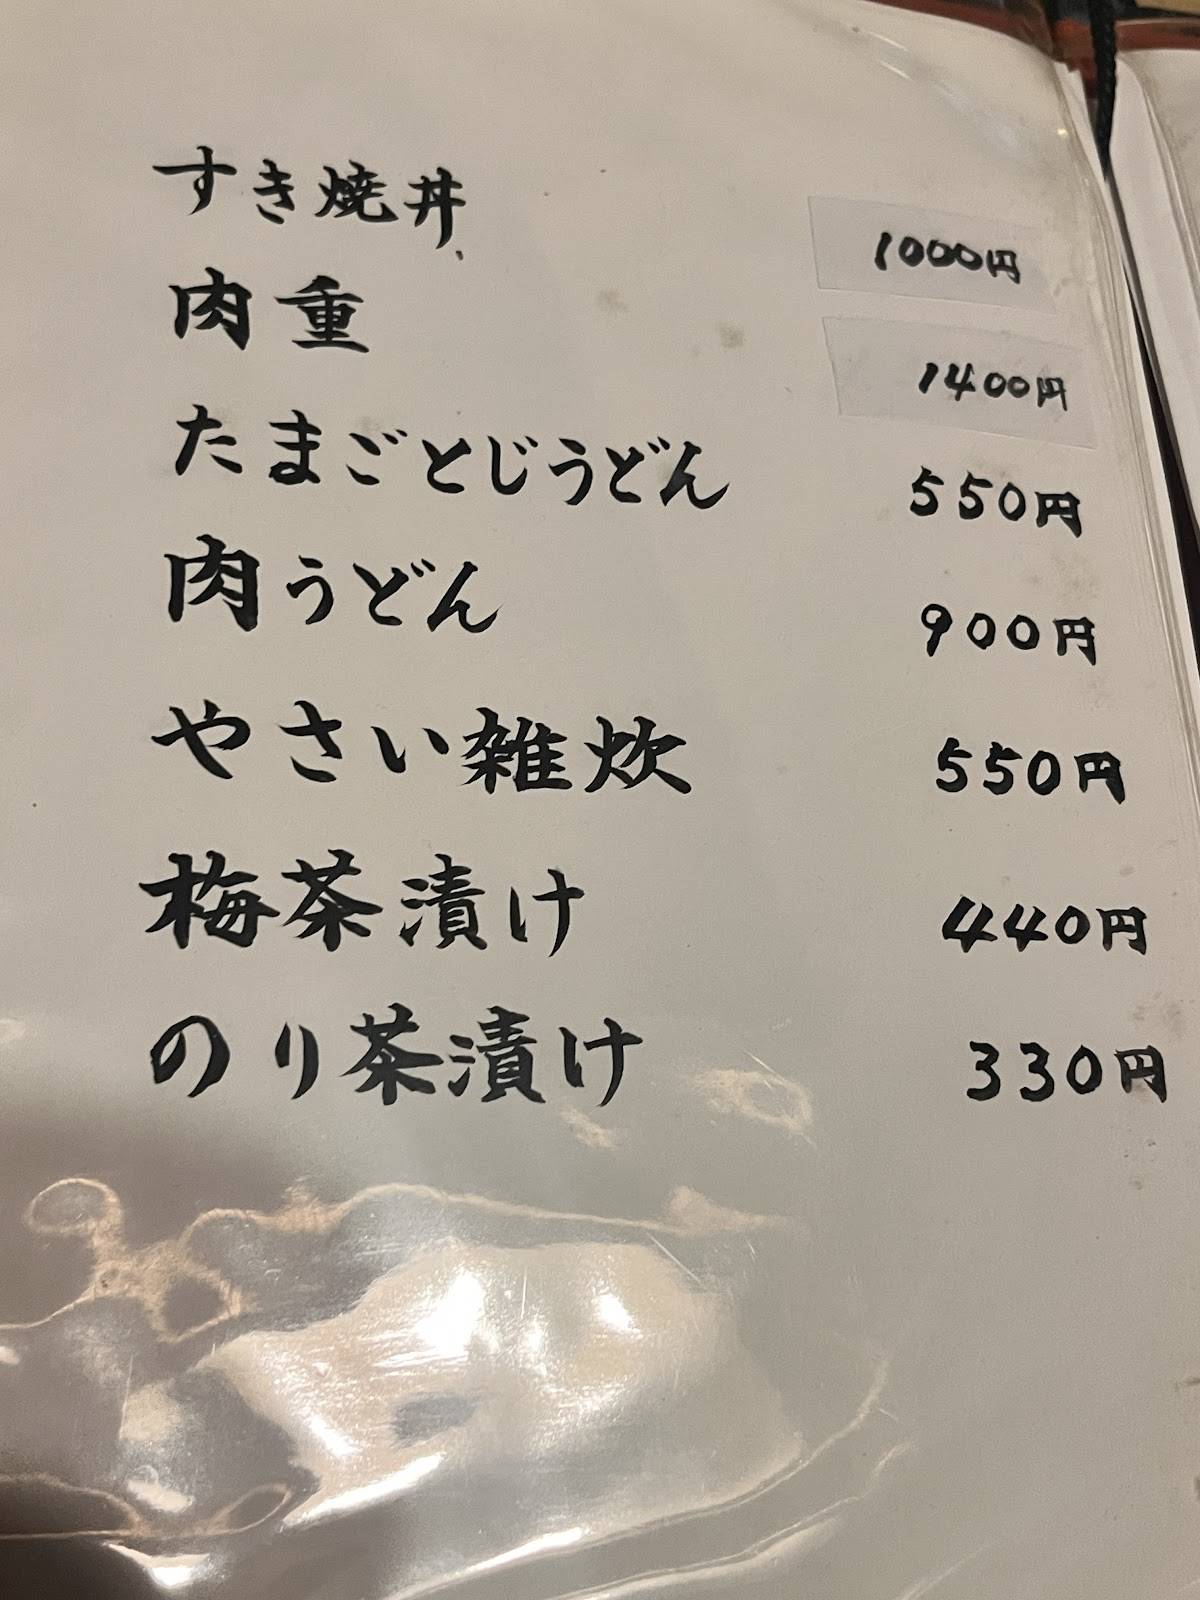 すき焼丼 1000円
肉重 1400円
たまごとじうどん 550円
肉うどん 900円
やさい雑炊 550円
梅茶漬け 440円
のり茶漬け 330円